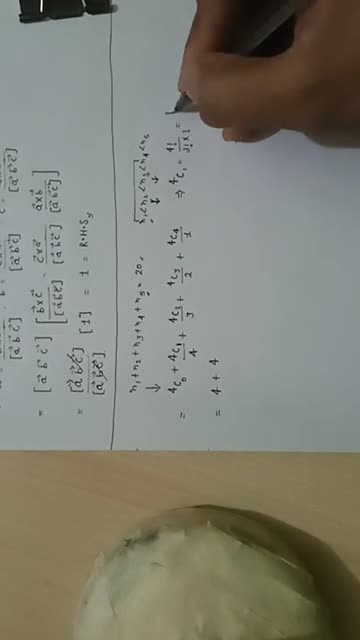 [a⃗ b⃗ c⃗] [a⃗ b⃗ c⃗] [a⃗ b⃗ c⃗]
= [a⃗ b⃗ c⃗] [ b⃗×c⃗/[a⃗ b⃗ c⃗] c⃗×a⃗/[a⃗ b⃗ c⃗] a⃗×b⃗/[a⃗ b⃗ c⃗] ]
= [a⃗ b⃗ c⃗]/[a⃗ b⃗ c⃗] [1] = 1 = R.H.S
n₁+n₂+n₃+n₄+n₅ = 20, n₁<n₂<n₃<n₄<n₅
↓ ↓ ↓
= 4C₀ + 4C₁/4 + 4C₂/3 + 4C₃/2 + 4C₄/1 ⇒ 4C₁ = 4!/3!×1 =
= 4 + 4